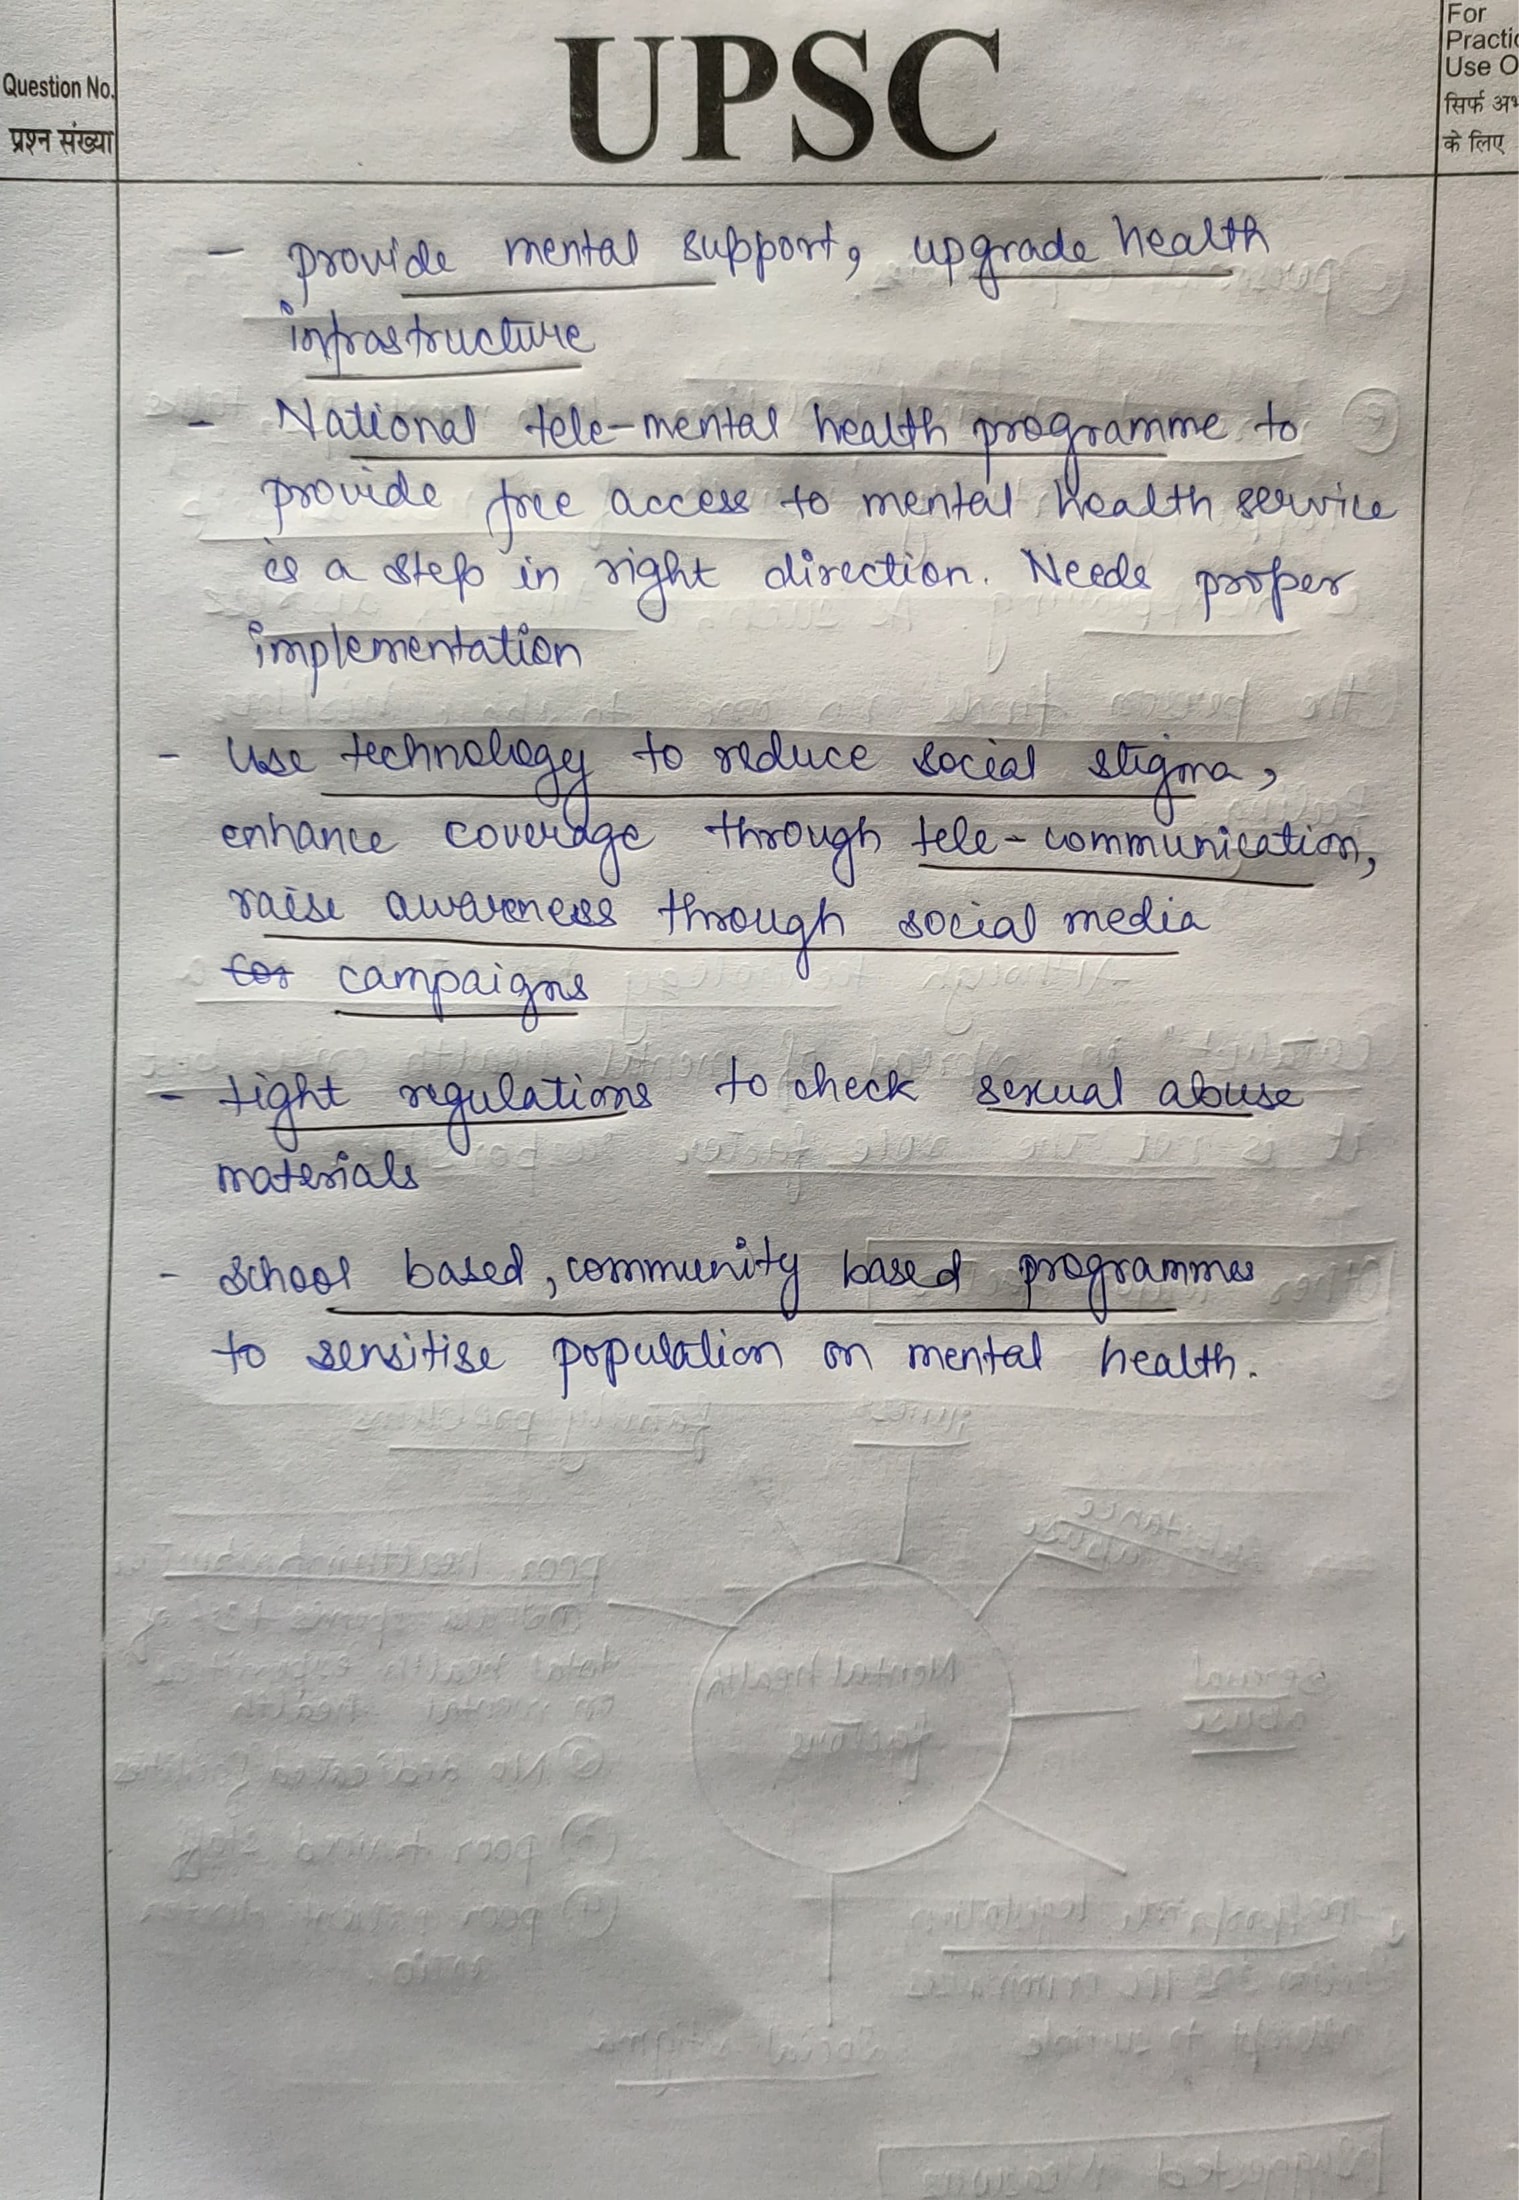 Question No.
प्रश्न संख्या
UPSC
For
Use O
के लिए
- provide mental support, upgrade health
infrastructure
- National tele-mental health programme to
provide free access to mental health service
is a step in right direction. Needs proper
implementation
- Use technology to reduce social stigma,
enhance coverage through tele-communication,
raise awareness through social media
campaigns
- tight regulations to check sexual abuse
materials
- School based, community based programmes
to sensitise population on mental health.